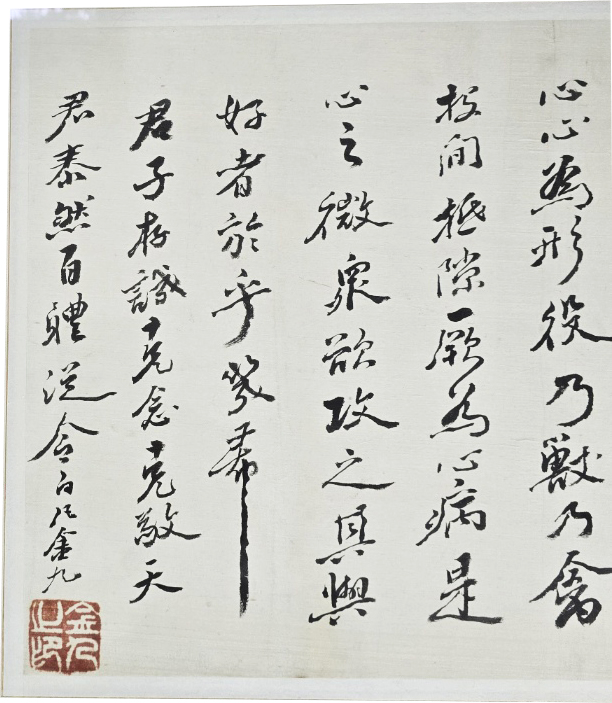 心心為形役乃獸乃禽
投間抵隙厥為心病是
心之微衆欲攻之其與
好者於乎幾希
君子存誠克念克敬天
君泰然百體從令白凡金九
金九之印